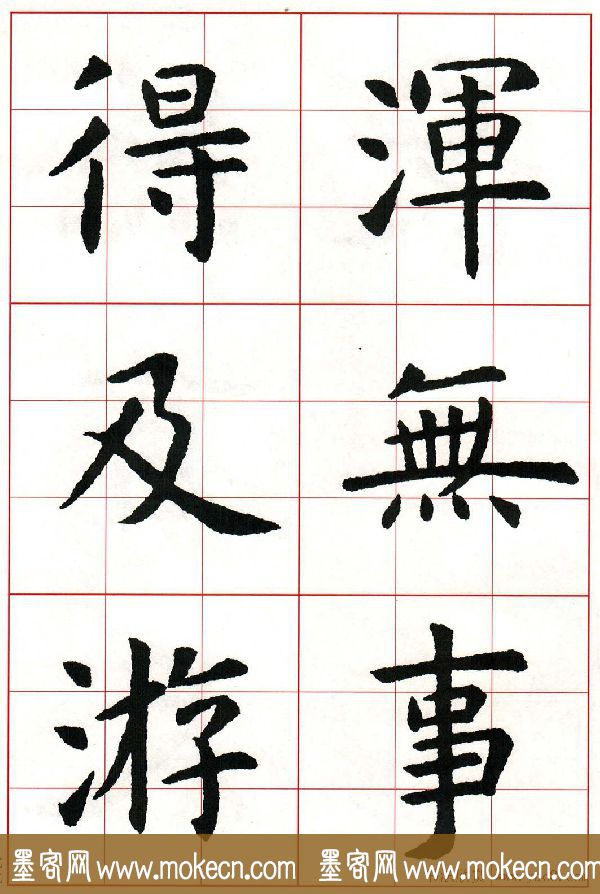 渾無事
得及游
墨客网 www.mokecn.com 墨客网 www.mokecn.com